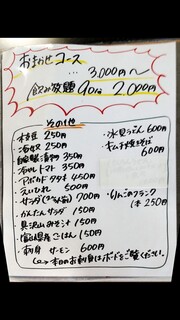 おまかせコース
… 3,000円〜
飲み放題 90分 2,000円
その他
・枝豆 250円
・漬奴 250円
350円
・冷やしトマト 350円
・アボカドタタキ 450円
・えいひれ 500円
・サラダ 700円
・かんたんサラダ 150円
・具沢山みそ汁 150円
・富山県産ごはん 150円
・刺身 サーモン 600円
・氷見うどん 600円
・キムチ焼そば
600円
・りんごのフランク
1本 250円
本日のお刺身はボードをご覧ください。